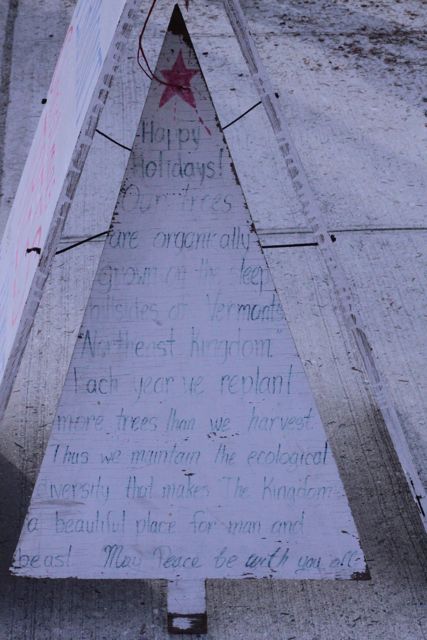 Happy
Holidays!
Our trees
are organically
grown on the steep
hillsides of Vermonts
"Northeast Kingdom"
Each year we replant
more trees than we harvest
Thus we maintain the ecological
diversity that makes The Kingdom
a beautiful place for man and
beast May Peace be with you all